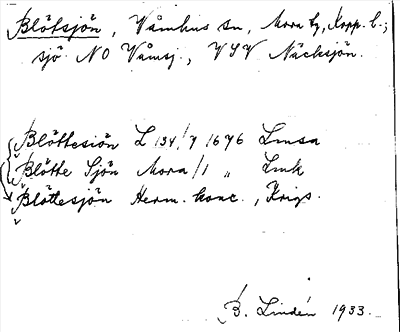 Blötsjön, Våmhus sn, Mora tg, Kopp. l.;
sjö NO Våmsj., VSV Näcksjön.
Blöttesiön L 134/7 1676 Lmsa
Blötte Siön Mora/1 „ Lmk
Blöttesjön Herm. konc., Krigs.
B. Lindén 1933.